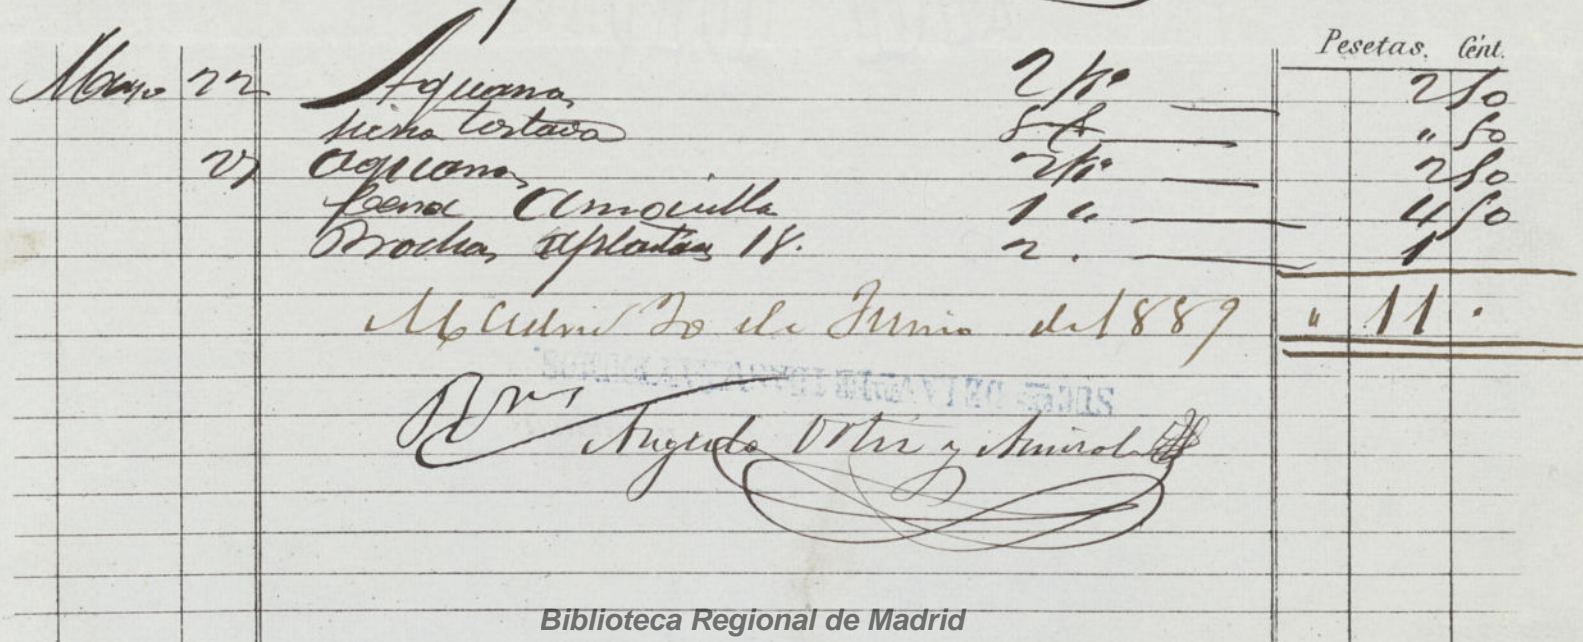 Pesetas. Cént.
Mayo 22 Aguarras 2 ko 2 50
siena tostada " 50
27 aguarras 2 ko 2 50
Cera Amarilla 1 " 4 50
Brochas aplastadas 18. 2 . 1
Madrid 30 de Junio de 1889 " 11 "
SUCres DE LA
Ortiz y
Biblioteca Regional de Madrid